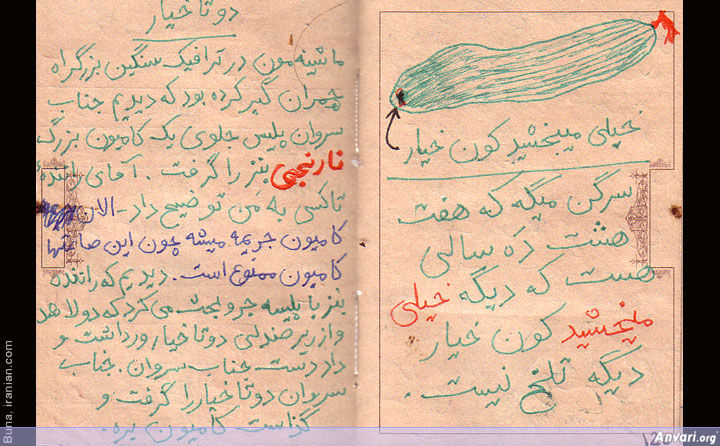 خیلی میبخشید کون خیار
سرگن میگه که هفت
هشت ده سالی
هست که دیگه خیلی
میبخشید کون خیار
دیگه تلخ نیست.
دو تا خیار
ماشینه مون در ترافیک سنگین بزرگراه
چمران گیر کرده بود که دیدیم جناب
سروان پلیس جلوی یک کامیون بزرگ
نارنجی بنز را گرفت. آقای رانندهٔ
تاکسی به من توضیح داد - الان
کامیون جریمه میشه چون این صاعتها
کامیون ممنوع است. دیدیم که راننده
بنز با پلیسه جر و بحث می کرد که دولا شد
و از زیر صندلی دو تا خیار ورداشت و
داد دست جناب سروان. جناب
سروان دو تا خیار را گرفت و
گذاشت کامیون بره.
Buna, iranian.com
Anvari.org